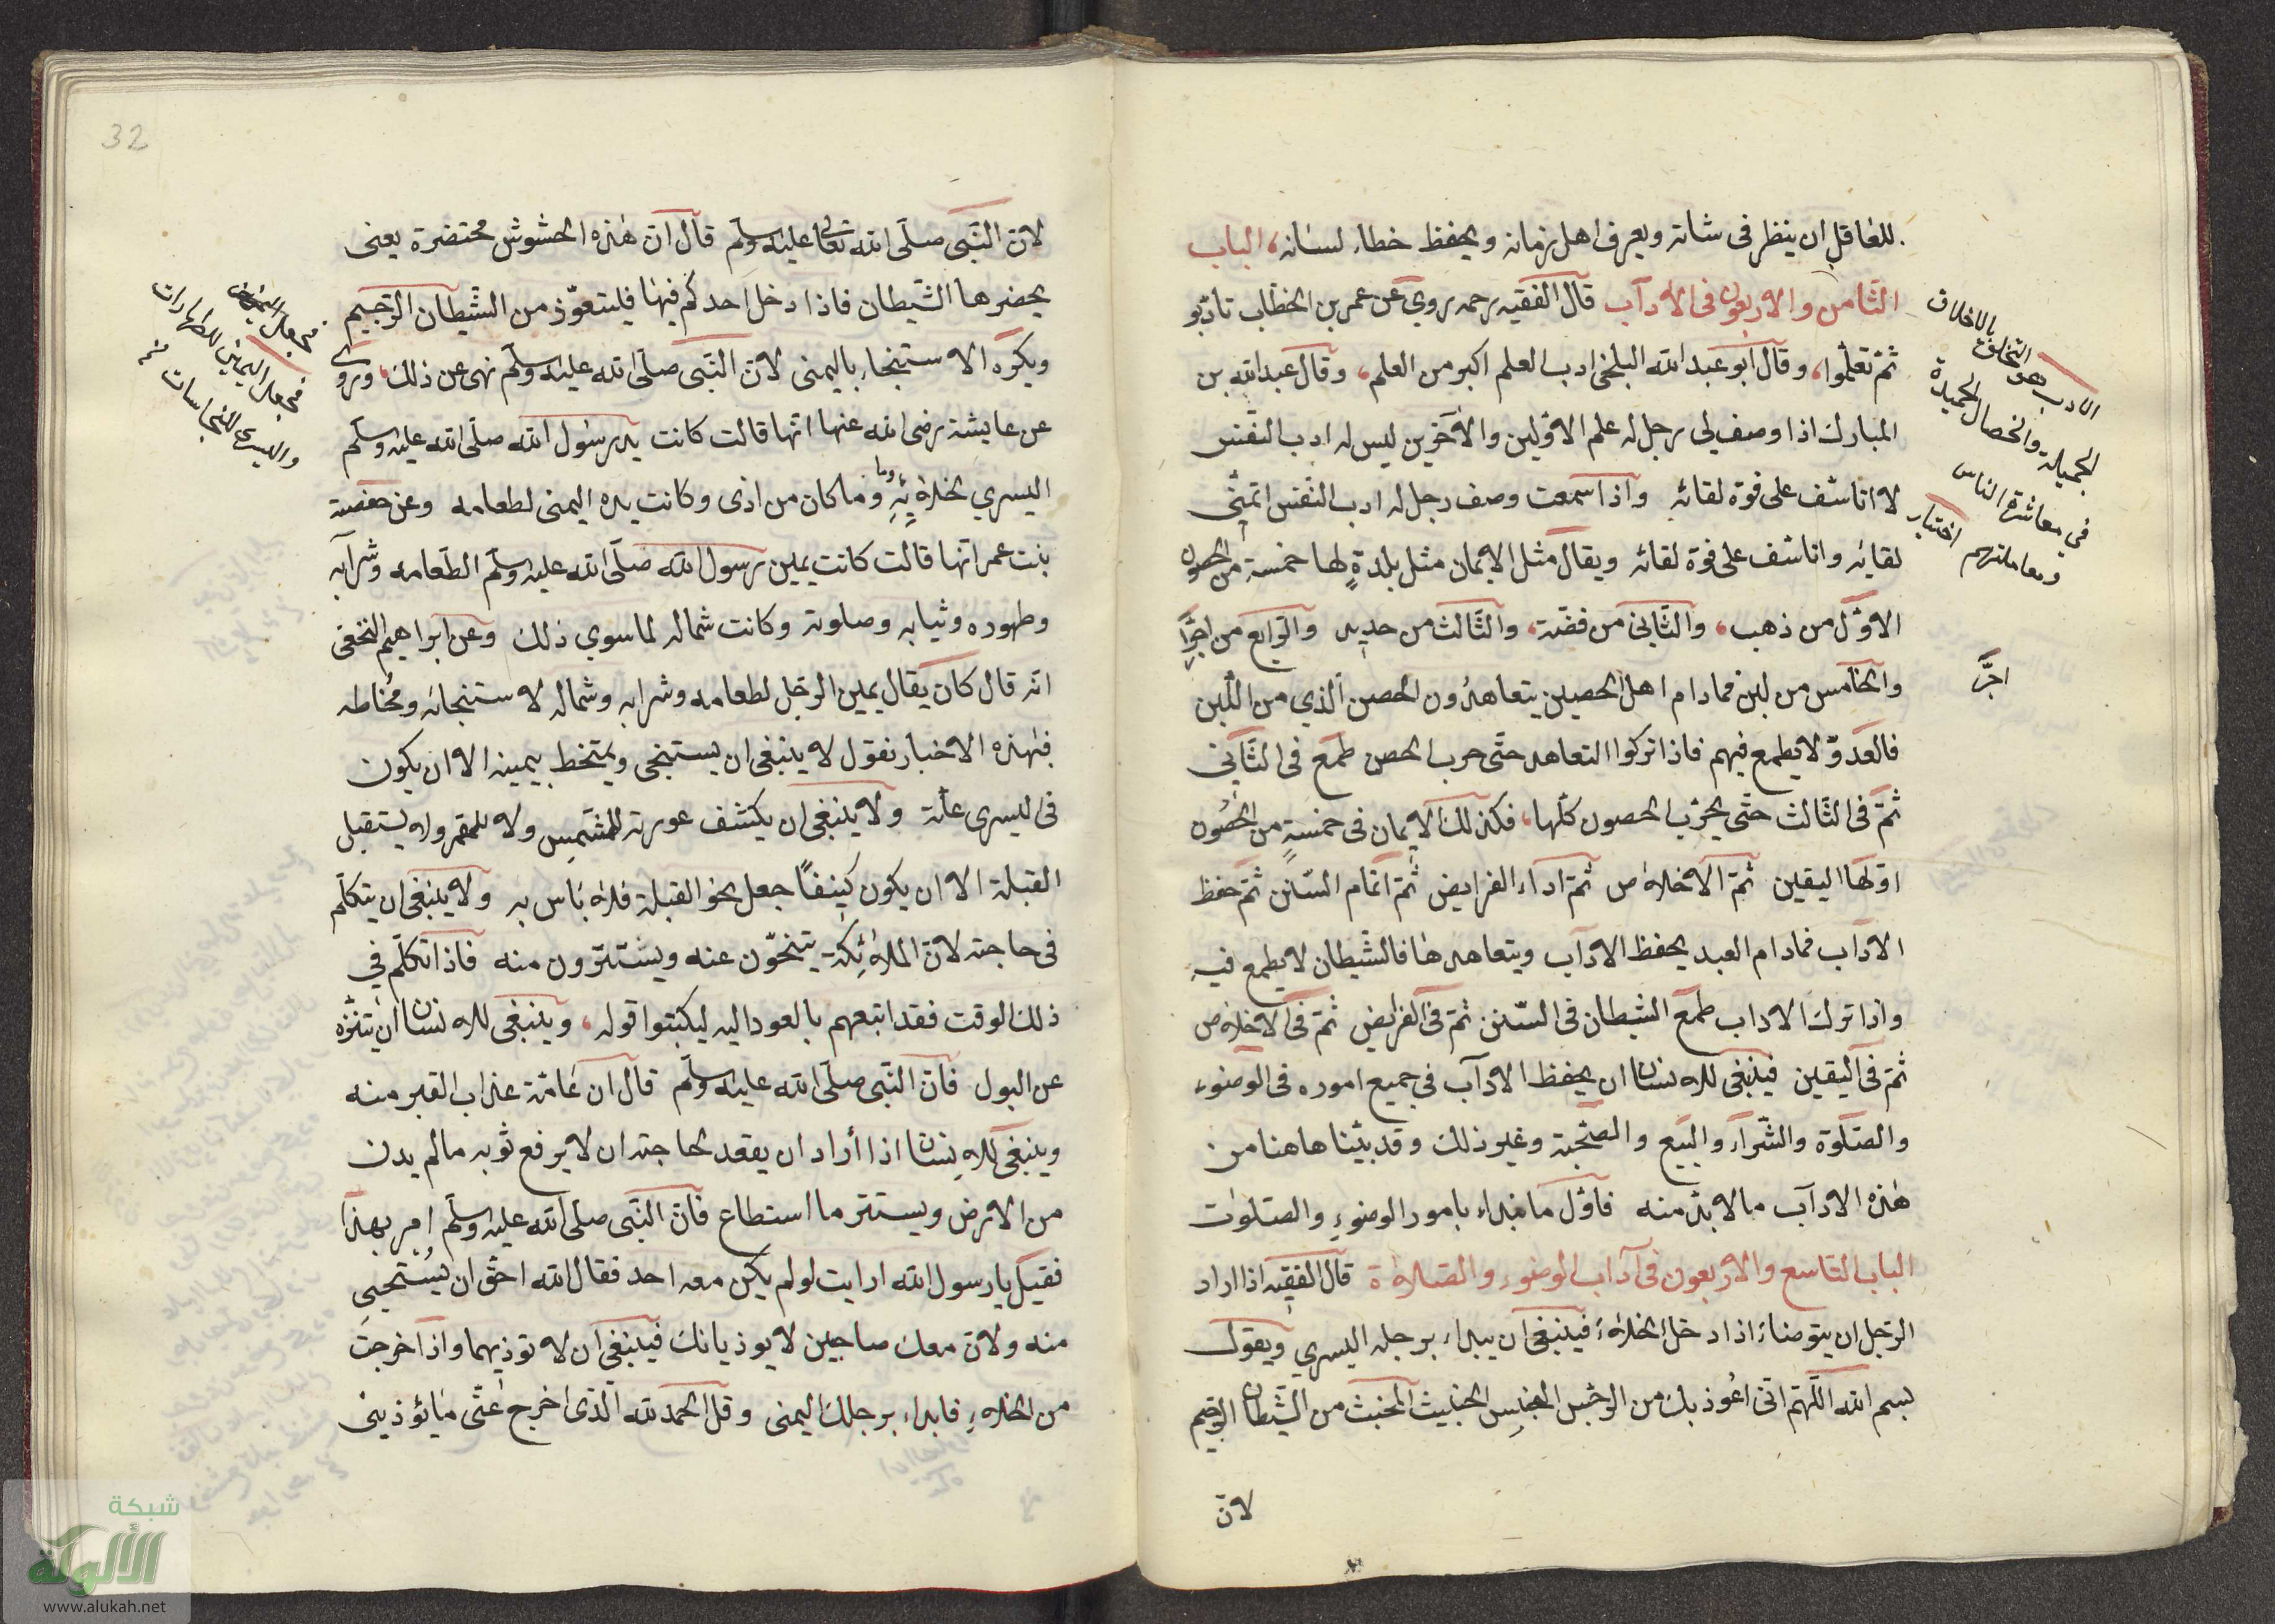 للعاقل ان ينظر فى شانه ويعرف اهل زمانه ويحفظ خطاء لسانه، الباب
الثّامن والاربعون فى الادآب قال الفقيه رحمه روي عن عمر بن الخطّاب تأدّبو
ثمّ تعلّموا، وقال ابو عبد الله البلخى ادب العلم اكبر من العلم، وقال عبد الله بن
المبارك اذا وصف لى رجل له علم الاوّلين والآخرين ليس له ادب النفس
لا اتاسّف على فوة لقائه واذا سمعت وصف رجل له ادب النفس اتمنّى
لقائه واتاسّف على فوة لقائه ويقال مثل الايمان مثل بلدةٍ لها خمسة من الحصون
الاوّل من ذهب، والثّانى من فضّة، والثّالث من حديد والرّابع من اجرٍّ
والخامس من لبن فمادام اهل الحصين يتعاهدُون الحصن الّذي من اللّبن
فالعدوّ لا يطمع فيهم فاذا تركوا التعاهد حتّى حرب الحصن طمع فى الثّانى
ثمّ فى الثّالث حتّى يخرّب الحصون كلّها، فكذلك الايمان فى خمسةٍ من الحصُون
اوّلها اليقين ثمّ الاخلاص ثمّ اداء الفرايض ثمّ اتمام السّنن ثمّ حفظ
الادآب فمادام العبد يحفظ الادآب ويتعاهدها فالشّيطان لا يطمع فيه
واذا ترك الاداب طمع الشيطان فى السّنن ثمّ فى الفرايض ثمّ فى الاخلاص
ثمّ فى اليقين فينبغى للانسان ان يحفظ الادآب فى جميع اموره فى الوضوء
والصّلوة والشّرآء والبيع والصّحبة وغير ذلك وقد بيّنا هاهنا من
هذه الادآب ما لا بدّ منه فاوّل ما نبداء بامور الوضوءِ والصّلوٰت
الباب التاسع والاربعون فى آداب الوضوء والصّلاة قال الفقيه اذا اراد
الرّجل ان يتوضاء اذا دخل الخلاءَ فينبغى ان يبداء برجله اليسري ويقول
بسم الله اللّهمّ انّى اعُوذ بك من الرّجس النّجس الخبيث المخبث من الشّيطان الرّجيم
لانّ
الادب هو التخلق بالاخلاق
الجميلة والخصال الحميدة
فى معاشرة الناس
ومعاملتهم اختيار
اجرّ
32
لانّ النّبى صلّى الله تعالى عليه وسلّم قال انّ هذه الحشوش محتضرة يعنى
يحضرها الشّيطان فاذا دخل احدكم فيها فليتعوّذ من الشّيطان الرّجيم
ويكره الاستنجاء باليمنى لانّ النّبى صلّى الله عليه وسلّم نهى عن ذلك، وروى
عن عايشة رضى الله عنها انّها قالت كانت يد رسُول الله صلّى الله عليه وسلّم
اليسري لخلائِهِ وما وما كان من اذى وكانت يده اليمنى لطعامه وعن حفصة
بنت عمر انّها قالت كانت يمين رسول الله صلّى الله عليه وسلّم الطعامه وشرآبه
وطهوره وثيابه وصلوته وكانت شماله لما سوي ذلك وعن ابراهيم النخعى
انّه قال كان يقال يمين الرّجل لطعامه وشرابه وشماله لاستنجائه ومُخاطه
فبهذه الاخبار نقول لا ينبغى ان يستنجى ويمتخط بيمينه الا ان يكون
فى اليسرى علّة ولا ينبغى ان يكشف عورته للشّمسِ ولا للقمر ولا يستقبل
القبلة الا ان يكون كينفًا جعل نحو القبلة فلا باس به ولا ينبغى ان يتكلّم
فى حاجته لانّ الملائِكة يتنحّون عنه ويستترّون منه فاذا تكلّم فى
ذلك الوقت فقد اتبعهم بالعود اليه ليكتبوا قوله، وينبغى للانسان ان يتنزّه
عن البول فانّ النّبى صلّى الله عليه وسلّم قال ان عامّة عذاب القبر منه
وينبغى للانسان اذا أراد ان يقعد لحاجته ان لا يرفع ثوبه مالم يدن
من الارض ويستتر ما استطاع فانّ النّبى صلّى الله عليه وسلّم امر بهذا
فقيل يا رسول الله ارايت لو لم يكن معه احد فقال الله احقّ ان يُستحيى
منه ولانّ معك صاحبين لا يوذيانك فينبغى ان لا توذيهما واذا خرجت
من الخلاءِ فابداء برجلك اليمنى وقل الحمد لله الّذى اخرج عنّى ما يؤذينى
فجعل اليمين للطهارات
واليسرى للنجاسات
شبكة
الألوكة
www.alukah.net